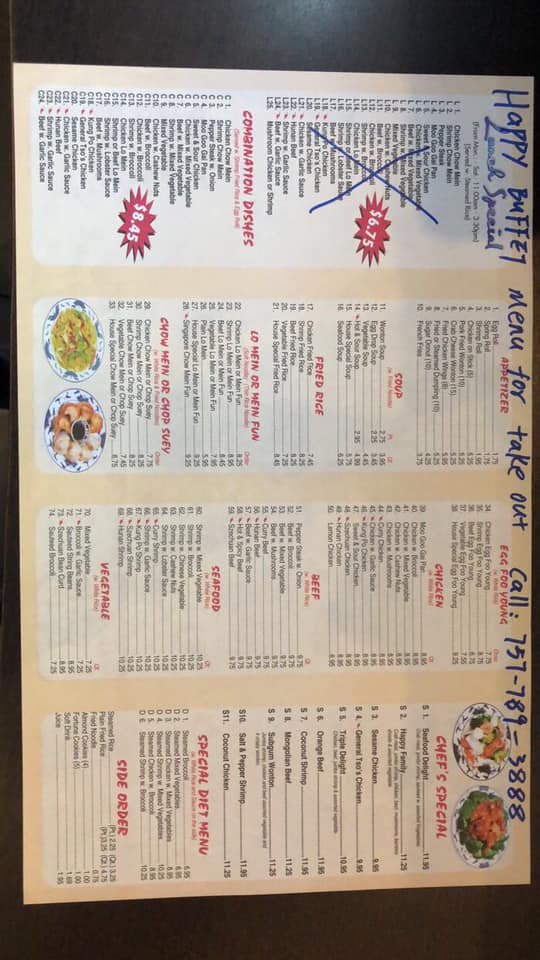 Happy Buffet Menu for take out Call: 757-789-3888
Lunch Special
(From Mon. - Sat. 11:00am - 3:30pm)
(Served w. Steamed Rice)
$6.75
L 1. Chicken Chow Mein
L 2. Shrimp Chow Mein
L 3. Pepper Steak
L 4. Moo Goo Gai Pan
L 5. Sweet & Sour Chicken
COMBINATION DISHES
$8.45
C 1. Chicken Chow Mein
C 2. Shrimp Chow Mein
C 3. Pepper Steak w. Onion
C 4. Moo Goo Gai Pan
C 5. Sweet & Sour Chicken
C 6. Chicken w. Mixed Vegetable
C 7. Beef w. Mixed Vegetable
C 8. Shrimp w. Mixed Vegetable
C 9. Mixed Vegetable
C10. Chicken w. Cashew Nuts
C11. Beef w. Broccoli
C12. Chicken w. Broccoli
C13. Shrimp w. Broccoli
C14. Chicken Lo Mein
C15. Shrimp or Beef Lo Mein
C16. Shrimp w. Lobster Sauce
C17. Beef w. Mushrooms
C18. Kung Po Chicken
C19. General Tso's Chicken
C20. Sesame Chicken
C21. Chicken w. Garlic Sauce
C22. Hunan Beef
C23. Shrimp w. Garlic Sauce
C24. Beef w. Garlic Sauce
APPETIZER
1. Egg Roll 1.75
2. Spring Roll 1.75
3. Shrimp Roll 1.95
4. Chicken on Stick (6) 5.25
5. Pork Wonton (10) 5.25
6. Crab Cheese Wonton (15) 5.25
7. Fried Chicken Wings (8) 5.25
8. Fried or Steamed Dumpling (10) 5.25
9. Sugar Donut (10) 4.25
10. French Fries 3.75
SOUP
(w. Fried Noodle) Pt. Qt.
11. Wonton Soup 2.75 3.95
12. Egg Drop Soup 2.25 3.45
13. Vegetable Soup 3.95
14. Hot & Sour Soup 2.95 4.99
15. House Special Soup 5.75
16. Seafood Soup 6.25
FRIED RICE
17. Chicken Fried Rice 7.45
18. Shrimp Fried Rice 8.25
19. Beef Fried Rice 8.25
20. Vegetable Fried Rice 7.25
21. House Special Fried Rice 8.45
LO MEIN OR MEIN FUN
(Soft Noodle) (Thin Rice Noodle) Order
22. Chicken Lo Mein or Mein Fun 8.45
23. Shrimp Lo Mein or Mein Fun 8.95
24. Beef Lo Mein or Mein Fun 8.45
25. Vegetable Lo Mein or Mein Fun 7.45
26. Plain Lo Mein 5.95
27. House Special Lo Mein or Mein Fun 9.25
28. Singapore Chow Mein Fun 9.25
CHOW MEIN OR CHOP SUEY
(w. White Rice & Fried Noodle) Order
29. Chicken Chow Mein or Chop Suey 7.75
30. Shrimp Chow Mein or Chop Suey 8.25
31. Beef Chow Mein or Chop Suey 8.25
32. Vegetable Chow Mein or Chop Suey 7.45
33. House Special Chow Mein or Chop Suey 8.75
EGG FOO YOUNG
(w. White Rice) Order
34. Chicken Egg Foo Young 7.75
35. Shrimp Egg Foo Young 8.75
36. Beef Egg Foo Young 8.75
37. Vegetable Egg Foo Young 7.55
38. House Special Egg Foo Young 9.25
CHICKEN
(w. White Rice) Qt.
39. Moo Goo Gai Pan 8.95
40. Chicken w. Broccoli 8.95
41. Chicken w. Mixed Vegetable 8.95
42. Chicken w. Cashew Nuts 8.95
43. Chicken w. Mushrooms 8.95
45. Chicken w. Garlic Sauce 8.95
46. Kung Po Chicken 8.95
47. Sweet & Sour Chicken 8.95
48. Szechuan Chicken 8.95
49. Hunan Chicken 8.95
50. Lemon Chicken 8.95
BEEF
(w. White Rice) Qt.
51. Pepper Steak w. Onion 9.75
52. Beef w. Broccoli 9.75
53. Beef w. Mixed Vegetable 9.75
54. Beef w. Mushrooms 9.75
55. Curry Beef 9.75
56. Hunan Beef 9.75
57. Beef w. Garlic Sauce 9.75
58. Hot & Spicy Beef 9.75
59. Szechuan Beef 9.75
SEAFOOD
(w. White Rice) Qt.
60. Shrimp w. Mixed Vegetable 10.25
61. Shrimp w. Broccoli 10.25
62. Shrimp w. Chinese Vegetable 10.25
63. Shrimp w. Cashew Nuts 10.25
64. Shrimp w. Lobster Sauce 10.25
65. Curry Shrimp 10.25
66. Shrimp w. Garlic Sauce 10.25
67. Kung Po Shrimp 10.25
68. Szechuan Shrimp 10.25
69. Hunan Shrimp 10.25
VEGETABLE
(w. White Rice) Qt.
70. Mixed Vegetable 7.25
71. Broccoli w. Garlic Sauce 7.25
72. Sauteed String Beans 8.95
73. Szechuan Bean Curd 8.95
74. Sauteed Broccoli 7.25
CHEF'S SPECIAL
S 1. Seafood Delight 11.95
S 2. Happy Family 11.25
S 3. Sesame Chicken 9.95
S 4. General Tso's Chicken 9.95
S 5. Triple Delight 10.95
S 6. Orange Beef 11.95
S 7. Coconut Shrimp 11.95
S 8. Mongolian Beef 11.25
S 9. Subgum Wonton 11.25
S10. Salt & Pepper Shrimp 11.95
S11. Coconut Chicken 11.25
SPECIAL DIET MENU
(w. White Rice and Sauce on the side)
D 1. Steamed Broccoli 6.95
D 2. Steamed Mixed Vegetables 6.95
D 3. Steamed Chicken w. Mixed Vegetables 8.95
D 4. Steamed Shrimp w. Mixed Vegetables 10.25
D 5. Steamed Chicken w. Broccoli 8.95
D 6. Steamed Shrimp w. Broccoli 10.25
SIDE ORDER
Steamed Rice (Pt.) 2.25 (Qt.) 3.25
Plain Fried Rice (Pt.) 3.25 (Qt.) 4.75
Fried Noodle 0.75
Almond Cookies (4) 1.00
Fortune Cookies (5) 1.00
Soft Drink 1.69
Juice 1.95